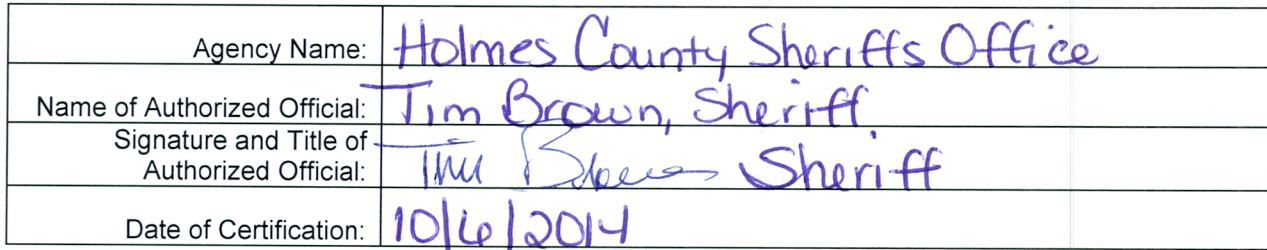 Agency Name: Holmes County Sheriffs Office
Name of Authorized Official: Tim Brown, Sheriff
Signature and Title of
Authorized Official: Tim Brown Sheriff
Date of Certification: 10/6/2014